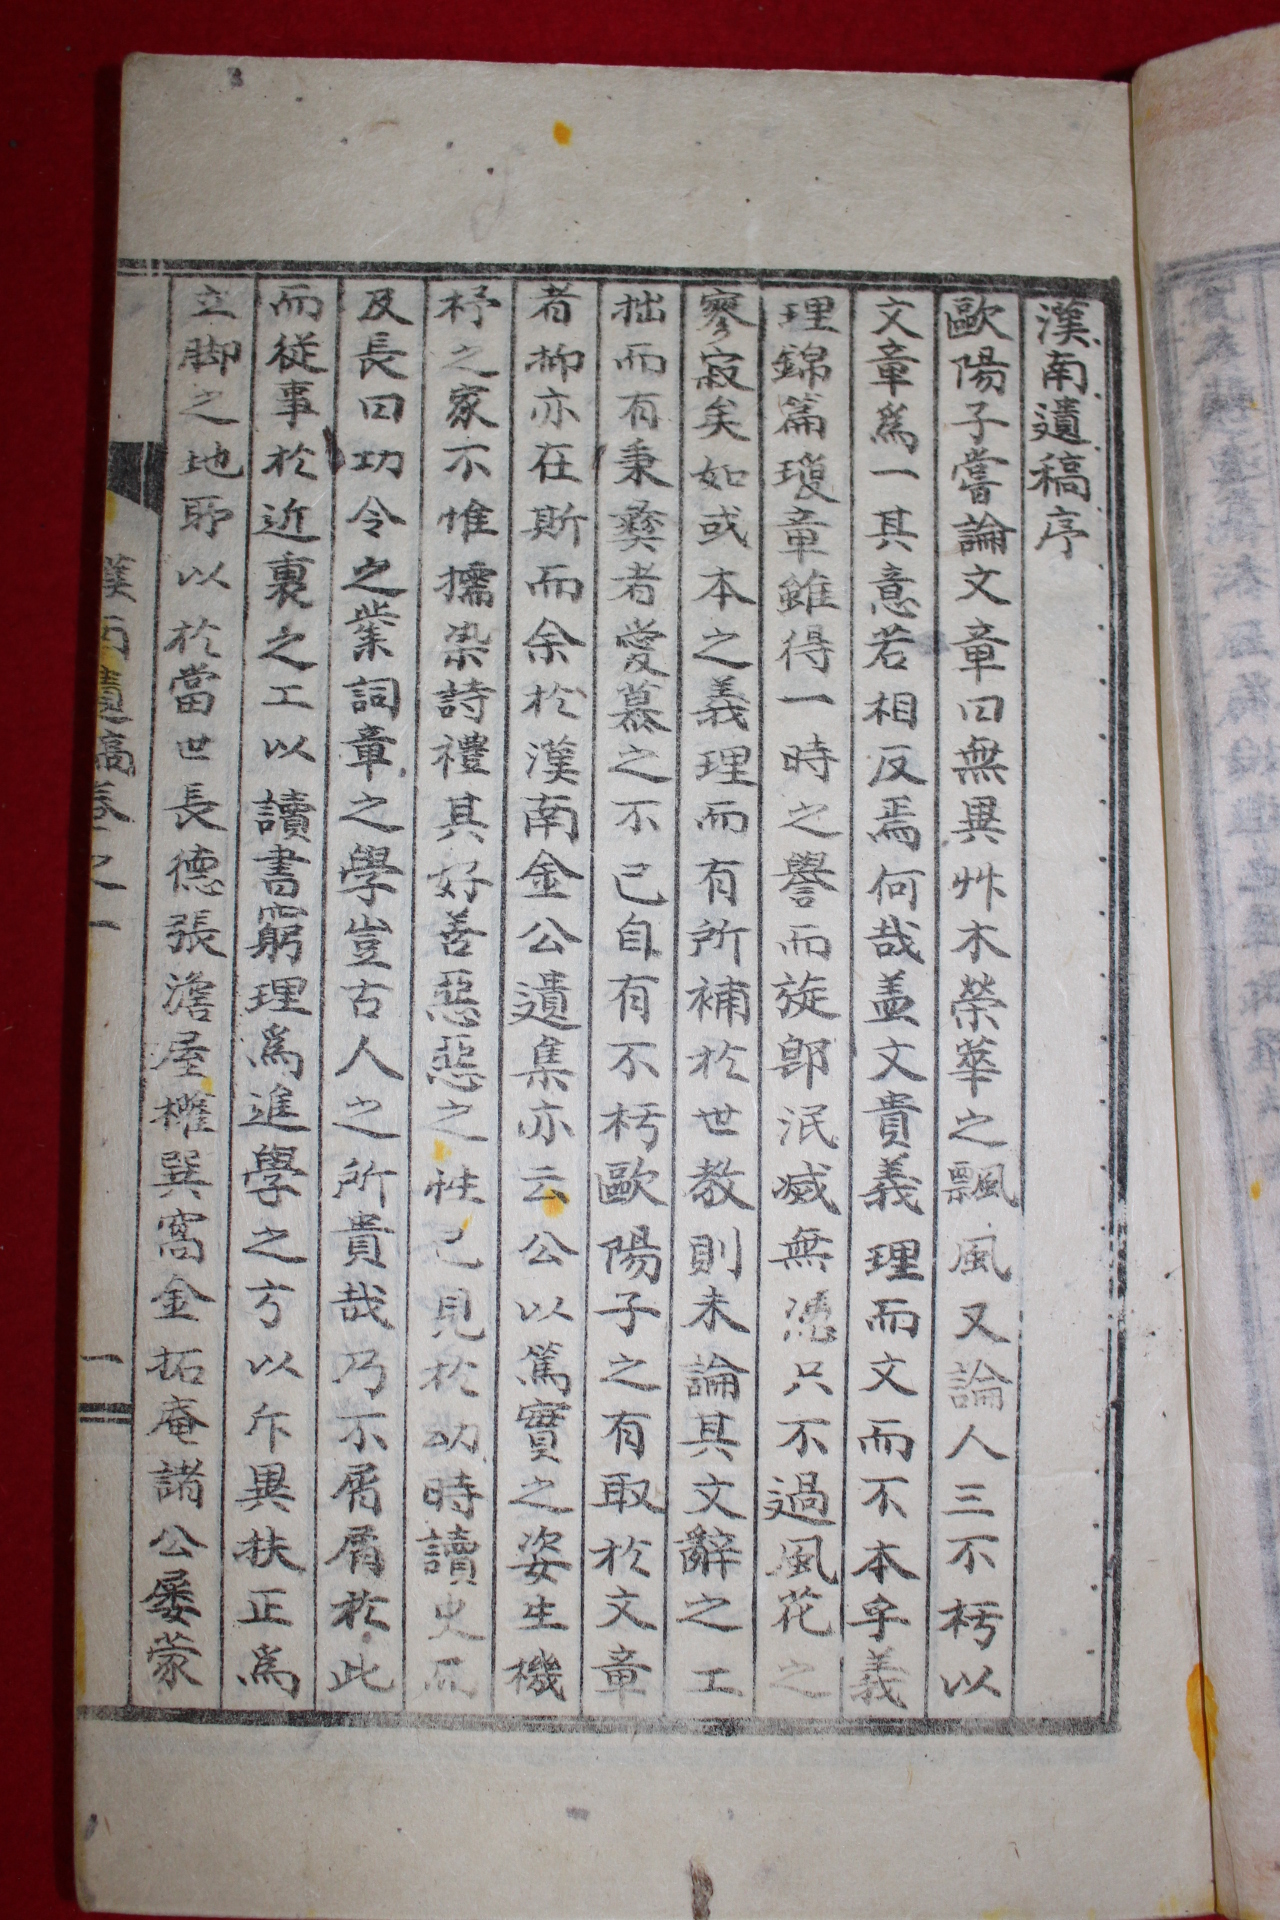 漢南遺稿序
歐陽子嘗論文章曰無異艸木榮華之飄風又論人三不朽以
文章爲一其意若相反焉何哉盖文貴義理而文而不本乎義
理錦篇瓊章雖得一時之譽而旋卽泯滅無憑只不過風花之
寥寂矣如或本之義理而有所補於世敎則未論其文辭之工
拙而有秉彜者愛慕之不已自有不朽歐陽子之有取於文章
者抑亦在斯而余於漢南金公遺集亦云公以篤實之姿生機
杼之家不惟擩染詩禮其好善惡惡之性已見於幼時讀史而
及長曰功令之業詞章之學豈古人之所貴哉乃不屑屑於此
而從事於近裏之工以讀書窮理爲進學之方以斥異扶正爲
立脚之地耶以於當世長德張澹屋權巽窩金拓庵諸公屡蒙
漢南遺稿卷之一
一